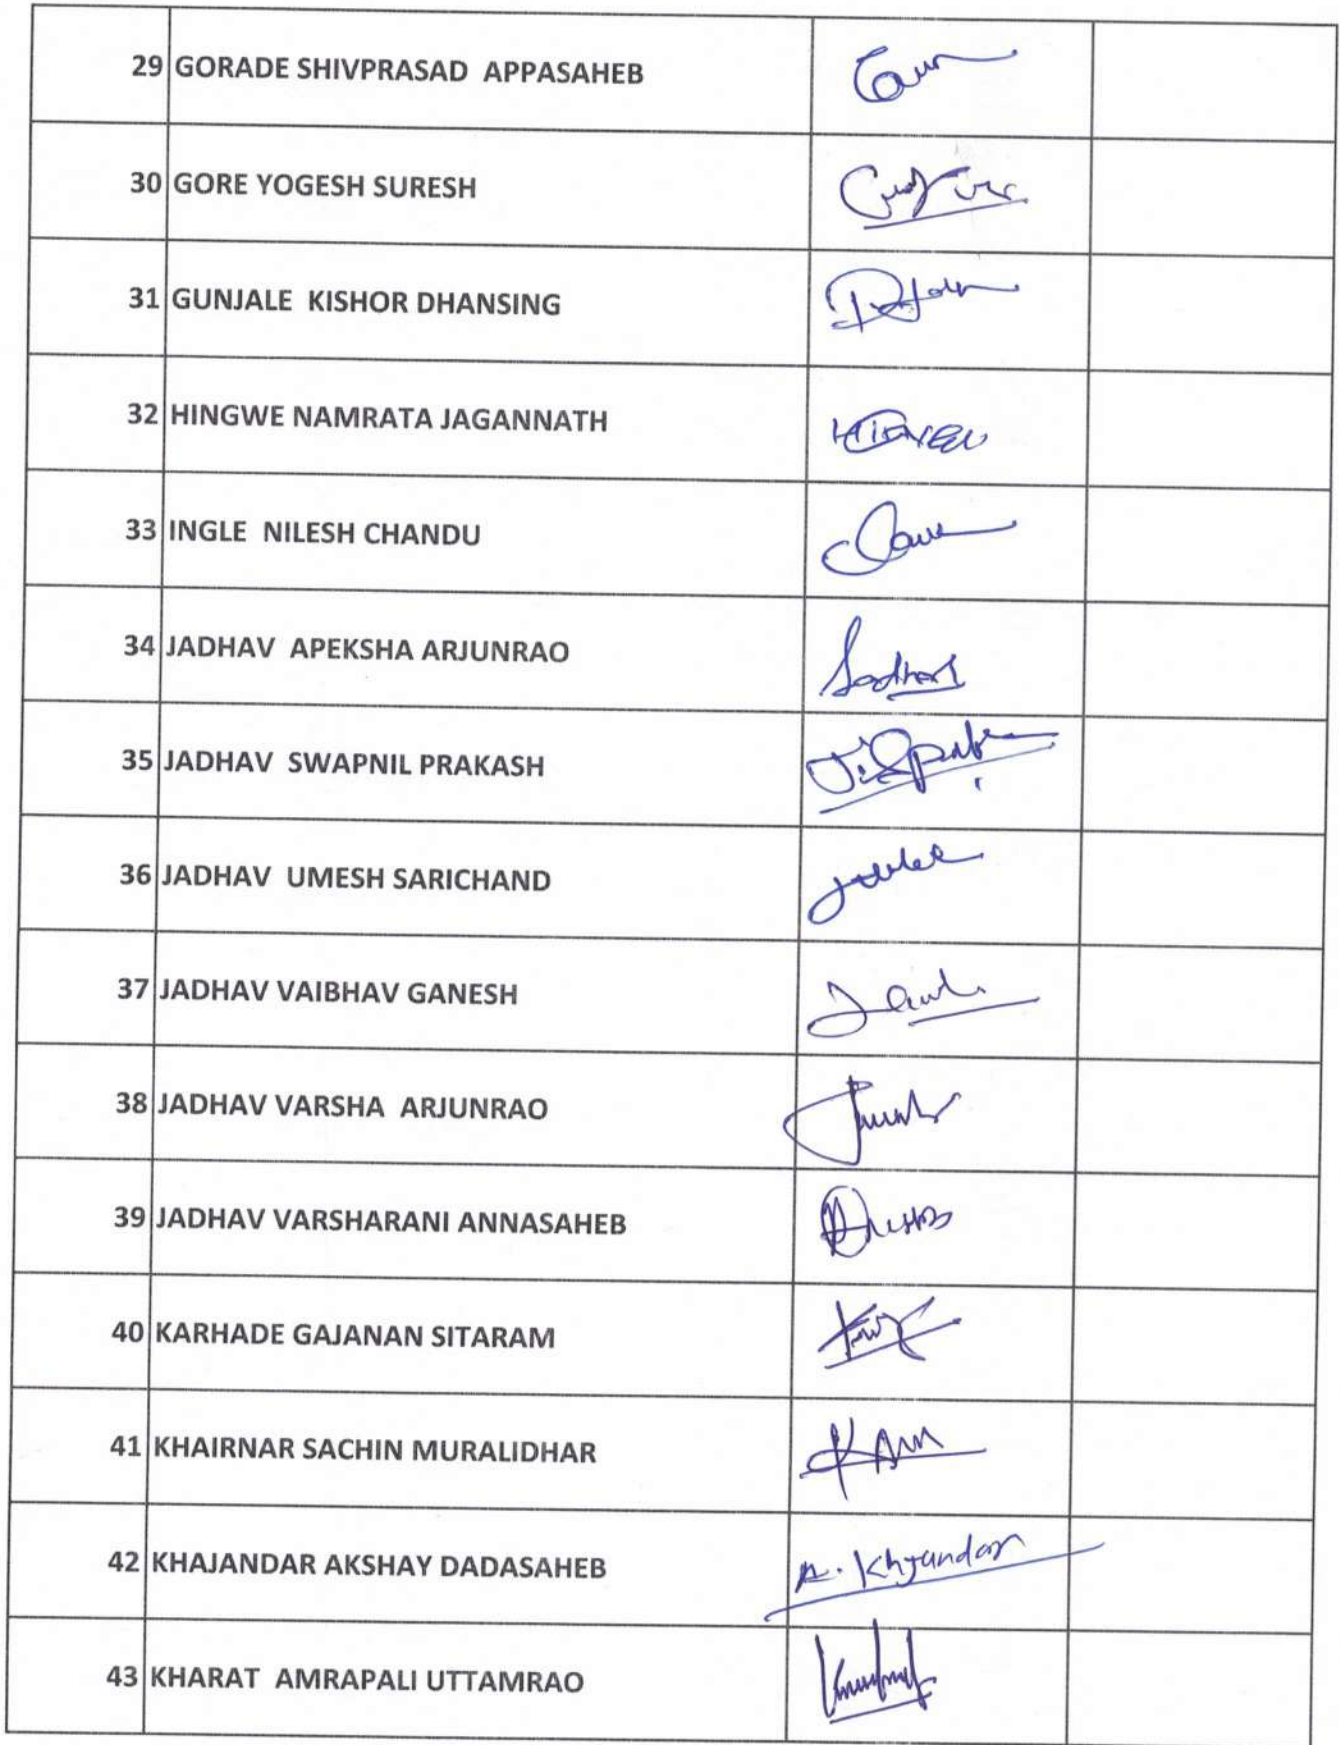 29 GORADE SHIVPRASAD APPASAHEB
30 GORE YOGESH SURESH
31 GUNJALE KISHOR DHANSING
32 HINGWE NAMRATA JAGANNATH
33 INGLE NILESH CHANDU
34 JADHAV APEKSHA ARJUNRAO
35 JADHAV SWAPNIL PRAKASH
36 JADHAV UMESH SARICHAND
37 JADHAV VAIBHAV GANESH
38 JADHAV VARSHA ARJUNRAO
39 JADHAV VARSHARANI ANNASAHEB
40 KARHADE GAJANAN SITARAM
41 KHAIRNAR SACHIN MURALIDHAR
42 KHAJANDAR AKSHAY DADASAHEB
43 KHARAT AMRAPALI UTTAMRAO